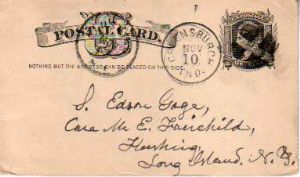 POSTAL CARD.
GREENSBURGH
NOV
10
IND.
NOTHING BUT THE ADDRESS CAN BE PLACED ON THIS SIDE
S. Edson Gage,
Care M. E. Fairchild,
Flushing,
Long Island. N. Y.